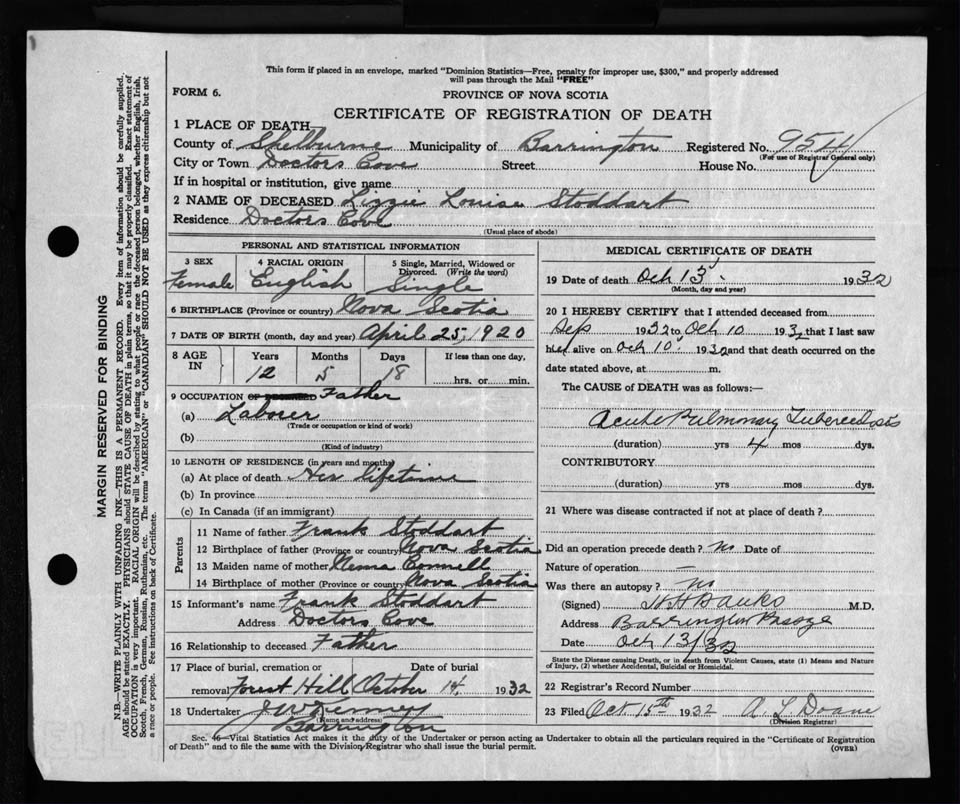 This form if placed in an envelope, marked "Dominion Statistics—Free, penalty for improper use, $300," and properly addressed
will pass through the Mail "FREE"
FORM 6.
PROVINCE OF NOVA SCOTIA
CERTIFICATE OF REGISTRATION OF DEATH
1 PLACE OF DEATH—
County of Shelburne Municipality of Barrington Registered No. 954
(For use of Registrar General only)
City or Town Doctors Cove Street House No.
If in hospital or institution, give name
2 NAME OF DECEASED Lizzie Louise Stoddart
Residence Doctors Cove
(Usual place of abode)
PERSONAL AND STATISTICAL INFORMATION
3 SEX 4 RACIAL ORIGIN 5 Single, Married, Widowed or Divorced. (Write the word)
Female English Single
6 BIRTHPLACE (Province or country) Nova Scotia
7 DATE OF BIRTH (month, day and year) April 25, 1920
8 AGE IN Years Months Days If less than one day,
12 5 18 hrs. or min.
9 OCCUPATION Father
(a) Laborer
(Trade or occupation or kind of work)
(b)
(Kind of industry)
10 LENGTH OF RESIDENCE (in years and months)
(a) At place of death Her lifetime
(b) In province
(c) In Canada (if an immigrant)
Parents
11 Name of father Frank Stoddart
12 Birthplace of father (Province or country) Nova Scotia
13 Maiden name of mother Nema Connell
14 Birthplace of mother (Province or country) Nova Scotia
15 Informant's name Frank Stoddart
Address Doctors Cove
16 Relationship to deceased Father
17 Place of burial, cremation or Date of burial
removal Forest Hill October 14, 1932
18 Undertaker J W Kenney
(Name and address)
Barrington
MEDICAL CERTIFICATE OF DEATH
19 Date of death Oct 13 1932
(Month, day and year)
20 I HEREBY CERTIFY that I attended deceased from
Sep 1932 to Oct 10 1932 that I last saw
her alive on Oct 10 1932 and that death occurred on the
date stated above, at m.
The CAUSE of DEATH was as follows:
Acute Pulmonary Tuberculosis
(duration) yrs 4 mos dys.
CONTRIBUTORY
(duration) yrs mos dys.
21 Where was disease contracted if not at place of death?
Did an operation precede death? No Date of
Nature of operation —
Was there an autopsy? No
(Signed) H H Banks M.D.
Address Barrington Passage
Date Oct 13/32
State the Disease causing Death, or in death from Violent Causes, state (1) Means and Nature
of Injury, (2) whether Accidental, Suicidal or Homicidal.
22 Registrar's Record Number
23 Filed Oct 15th 1932 A. L. Doane
(Division Registrar)
Sec. 46—Vital Statistics Act makes it the duty of the Undertaker or person acting as Undertaker to obtain all the particulars required in the "Certificate of Registration
of Death" and to file the same with the Division Registrar who shall issue the burial permit. (OVER)
MARGIN RESERVED FOR BINDING
N.B.—WRITE PLAINLY WITH UNFADING INK—THIS IS A PERMANENT RECORD. Every item of information should be carefully supplied.
AGE should be stated EXACTLY. PHYSICIANS should STATE CAUSE OF DEATH in plain terms, so that it may be properly classified. Exact statement of
OCCUPATION is very important. RACIAL ORIGIN will be described by stating to what people or race the deceased person belonged, whether English, Irish,
Scotch, French, German, Russian, Ruthenian, etc. The terms "AMERICAN" or "CANADIAN" SHOULD NOT BE USED as they express citizenship but not
a race or people. See instructions on back of Certificate.